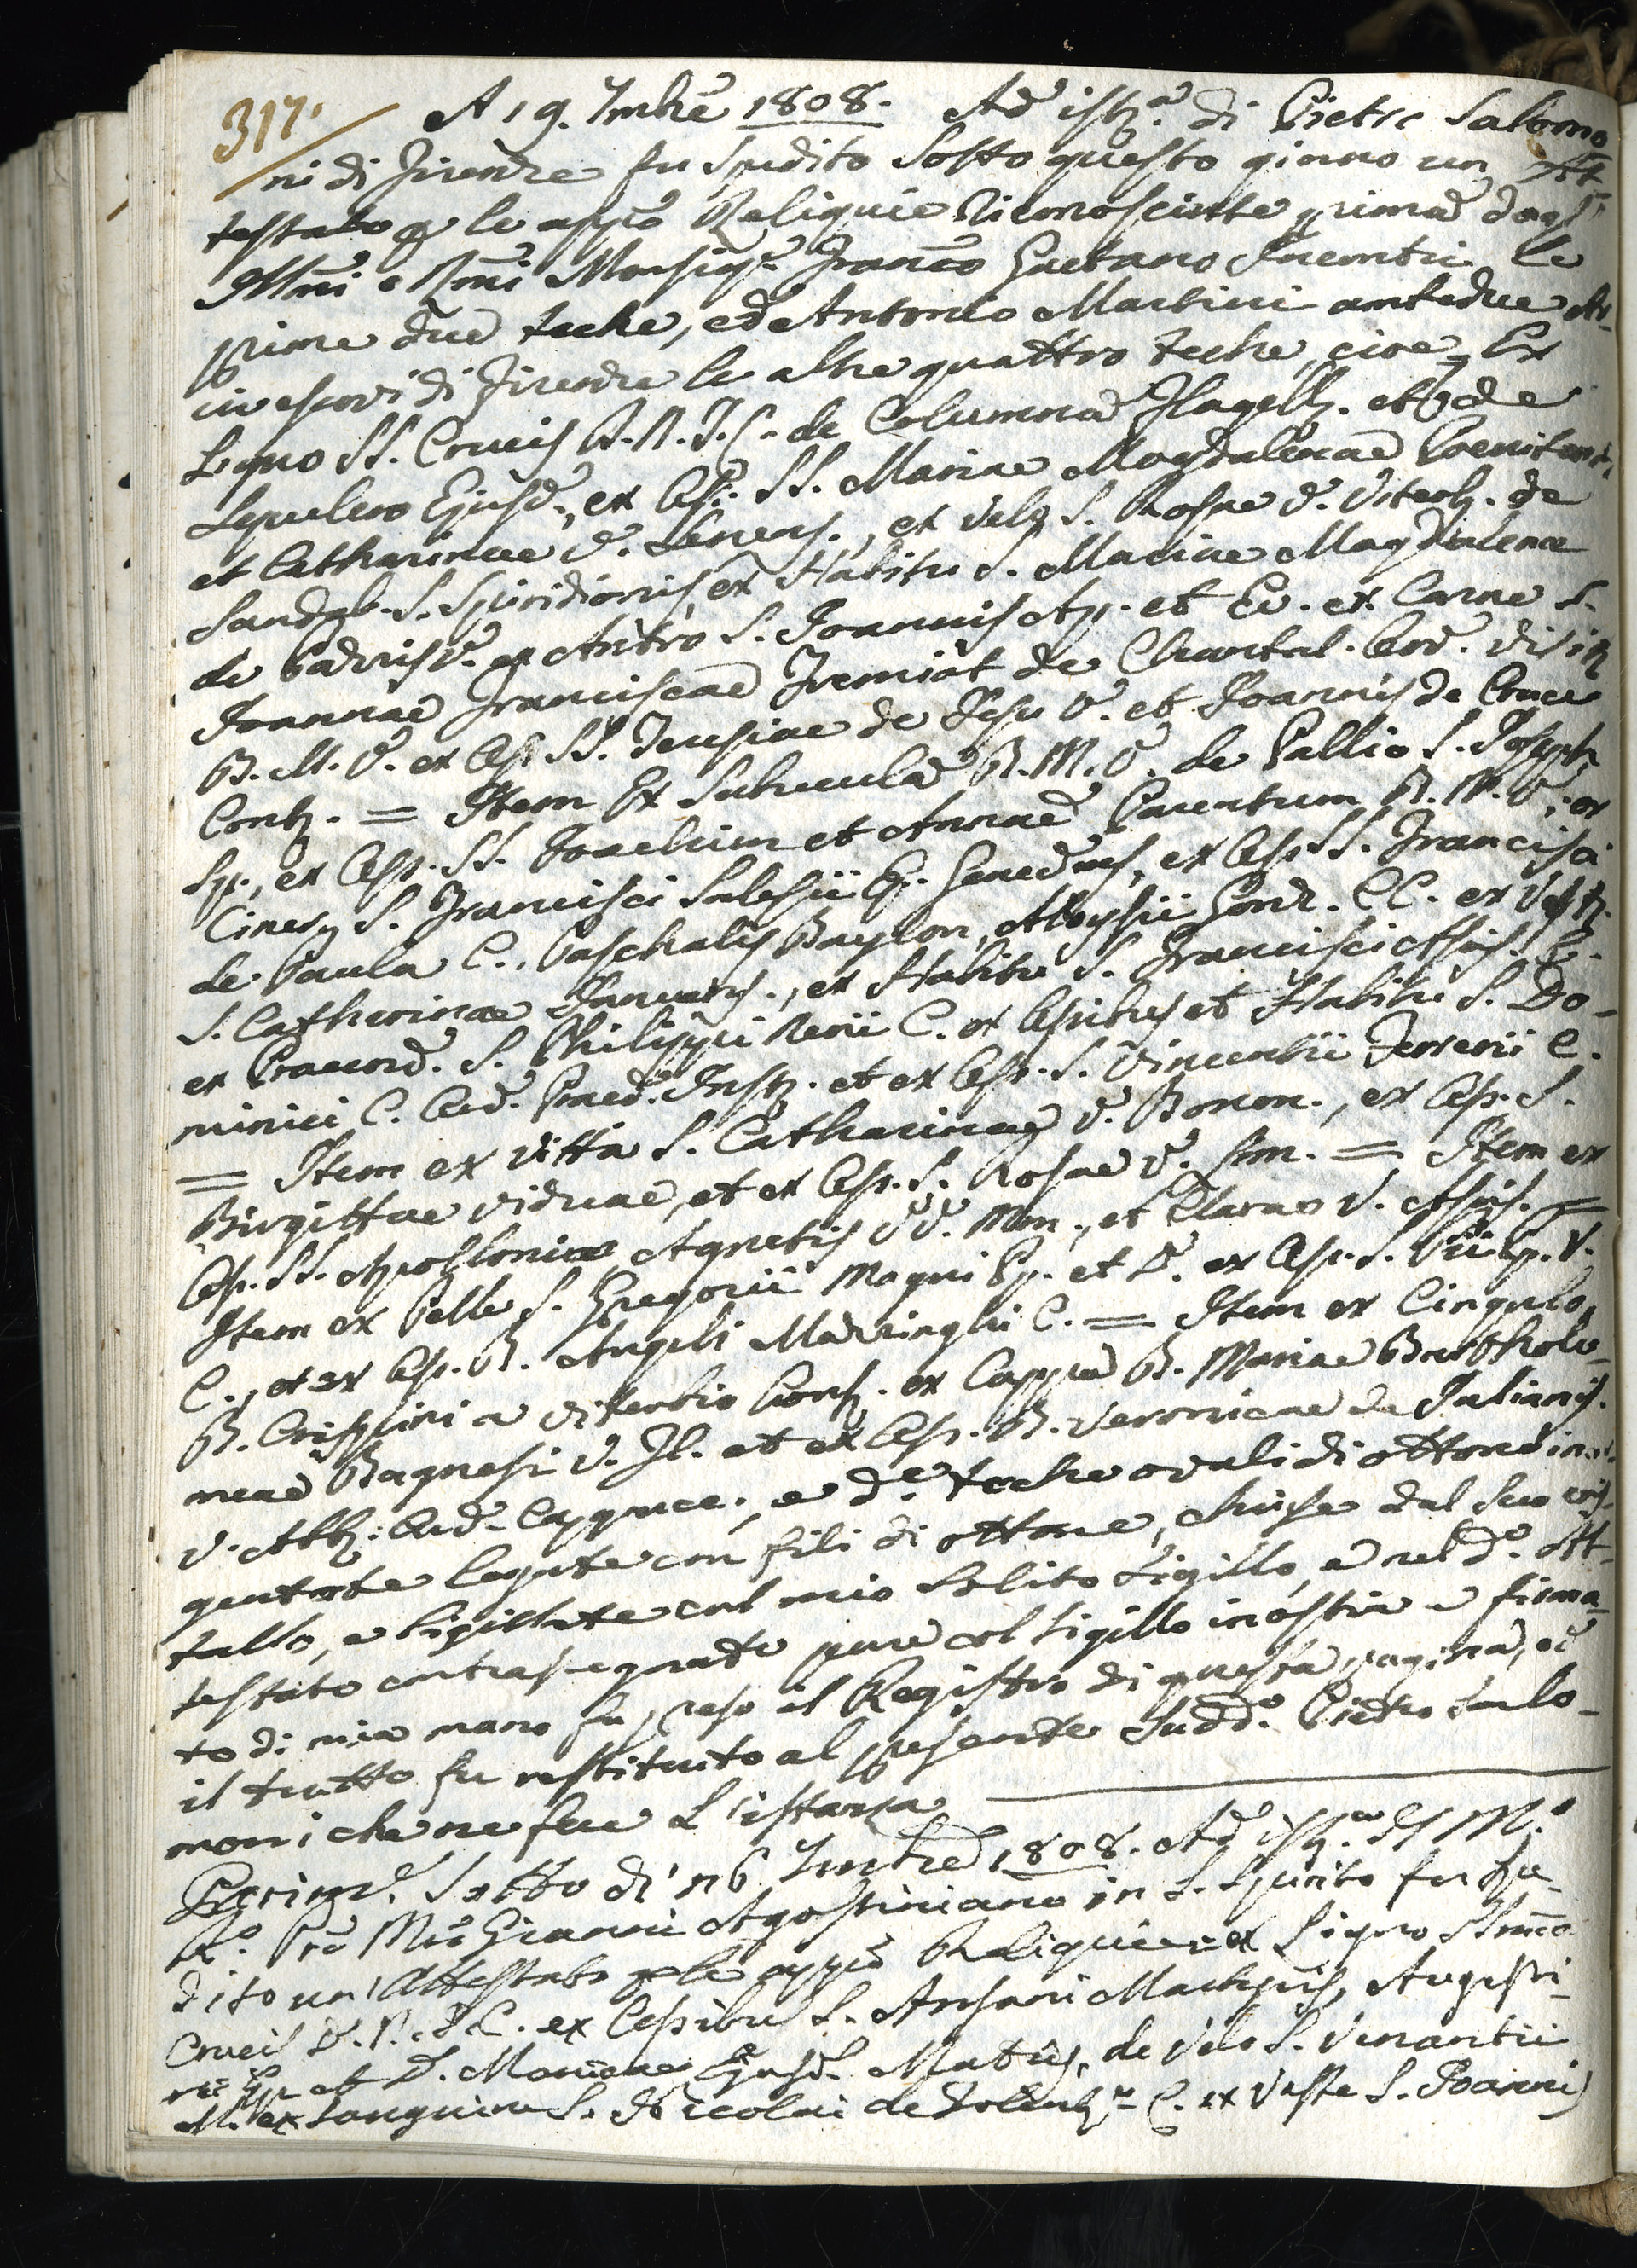 317. A 19. 7mbre 1808. Ad istz.ª di Pietro Salomo-
ni di Firenze fu spedito sotto questo giorno un At-
testato p le appiè Reliquie riconosciute prima dagl'
Illmi e Rmi Monsigri Franco Gaetano Incontri le
prime due teche, ed Antonio Martini ambedue Ar-
civescovi di Firenze le altre quattro teche, cioè = Ex
Ligno SS. Crucis D.N.J.C. de Columna Flagell. et de
Sepulcro Ejusd., ex Oss. SS. Mariae Magdalenae Poenitent.,
et Catharinae V. Senens., ex Velo S. Rosae V. Viterb. de
Sandal. S. Spiridionis, ex Habitu S. Mariae Magdalenae
de Pazzis V. ex Antro S. Joannis Ap. et Ev. ex Carne S.
Joannae Franciscae Fremiot de Chantal. Ord. Visit.
B.M.V. ex Oss. SS. Teresiae de Jesu V. et Joannis de Cruce
Conf. = Item Ex Subucula B.M.V. de Pallio S. Joseph
Sp., ex Oss. SS. Joachim et Annae Parentum B.M.V., ex
Cinerz. S. Francisci Salesii Ep. Genevens, ex Oss. S. Francisci
de Paula C., Paschalis Baylon, Aloysii Gonz. CC. ex Vest.
S. Catharinae Januens., ex Habitu S. Francisci Assis. C.
ex Praecord. S. Philippi Nerii C. ex Ossibus et Habitu S. Do-
minici C. Ord. Praed. Inst. et ex Oss. S. Vincentii Ferrerii C.
= Item ex Vitta S. Catharinae V. Bonon., ex Oss. S.
Birgittae viduae, et ex Oss. S. Rosae V. Lim. = Item ex
Oss. SS. Apolloniae, Agnetis VV. Mm., et Clarae V. Assis. =
Item ex Pelle S. Gregorii Magni Pp. et D. ex Oss. S. Pii Pp. V.
C., et ex Oss. B. Angeli Mazzinghi C. = Item ex Cingulo
B. Crispini a Viterbio Conf. ex Cappa B. Mariae Bartholo-
meae Bagnesi V. Fl. et ex Oss. B. Veronicae de Julianis
V. Abb. Ord. Cappucc., e d.e teche ovali di ottone inar-
gentate legate con fili di ottone, chiuse dal suo cris-
tallo, e sigillate col mio solito Sigillo, e nel d.o At-
testato contrasegnato pure col Sigillo in ostia e firma-
to di mia mano fu preso il Registro di questa pagina, ed
il tutto fu restituito al presente Sudd.o Pietro Salo-
moni che ne fece l'istanza
Parim.e Sotto dì 26 7mbre 1808. Ad istz.ª del M.º
R.º Pre Mro Gianni Agostiniano in S. Spirito fu spe-
dito un Attestato p le appiè Reliquie = ex Ligno SSmae
Crucis D.N.J.C. ex Ossibus S. Ansani Martyris, Augusti-
ni Ep. et D. Monicae Ejusd. Matris, de Velo S. Venantii
M. ex Sanguine S. Nicolai de Tolent.º C. ex Veste S. Joannis